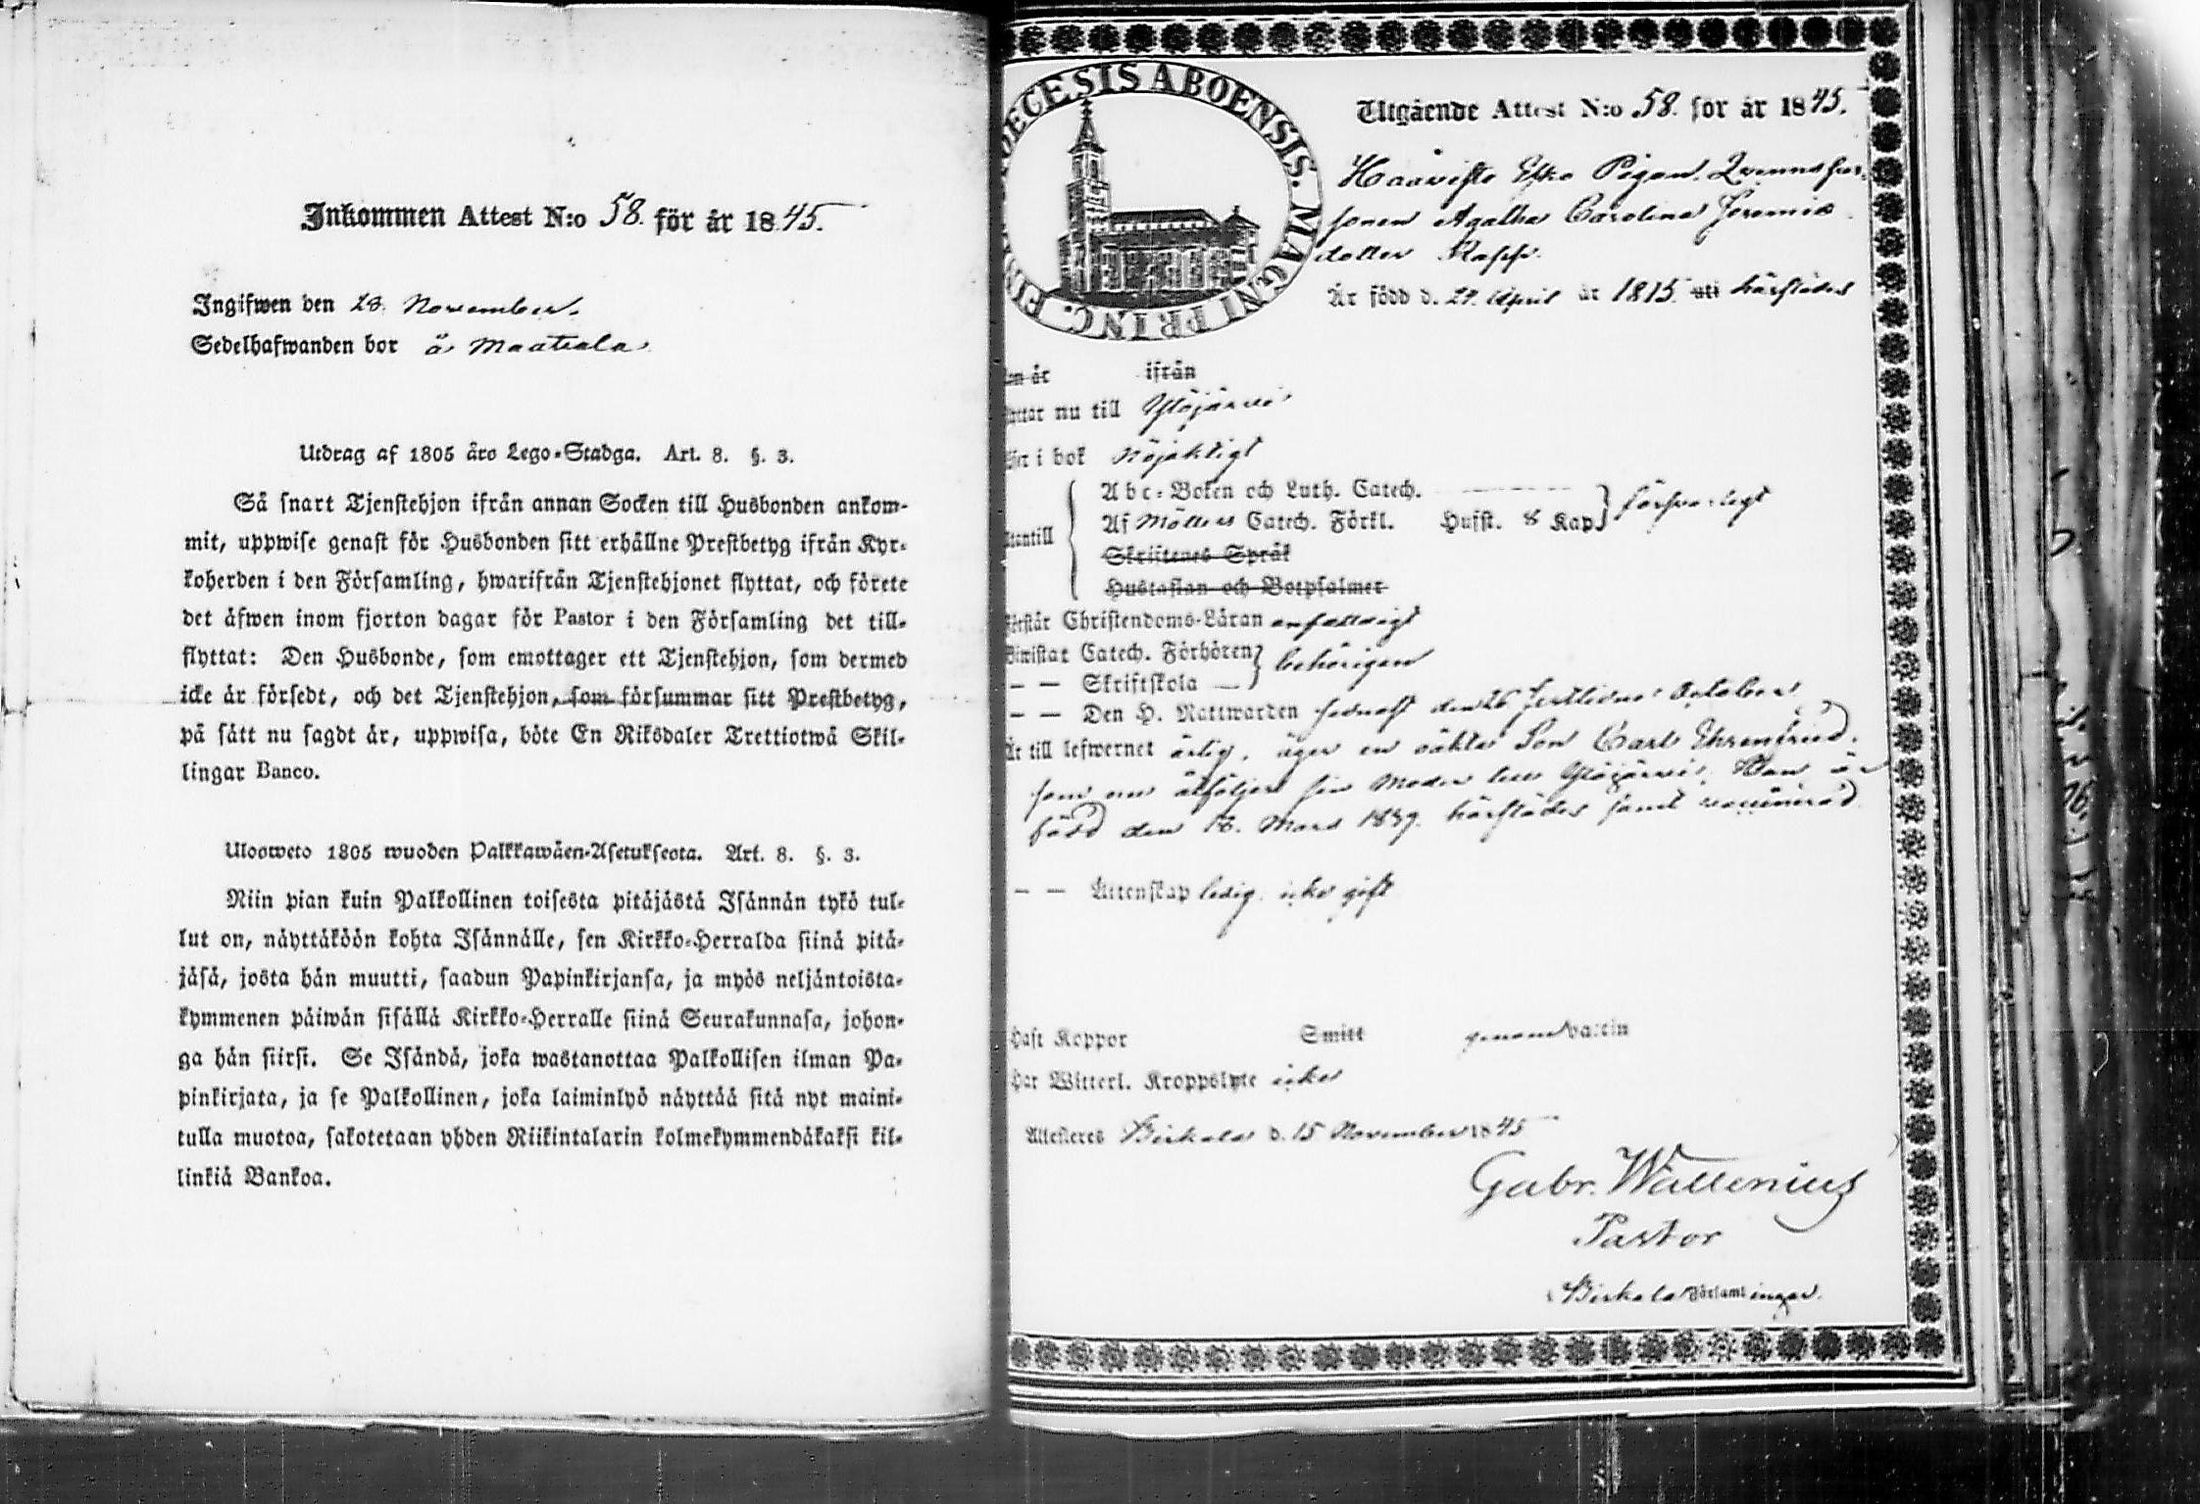 Inkommen Attest N:o 58. för år 1845.
Ingifwen den 23. November.
Sedelhafwanden bor å Maatiala
Utdrag af 1805 års Lego-Stadga. Art. 8. §. 3.
Så snart Tjenstehjon ifrån annan Socken till Husbonden ankom-
mit, uppwise genast för Husbonden sitt erhållne Prestbetyg ifrån Kyr-
koherden i den Församling, hwarifrån Tjenstehjonet flyttat, och förete
det äfwen inom fjorton dagar för Pastor i den Församling det till-
flyttat: Den Husbonde, som emottager ett Tjenstehjon, som dermed
icke är försedt, och det Tjenstehjon, som försummar sitt Prestbetyg,
på sätt nu sagdt är, uppwisa, böte En Riksdaler Trettiotwå Skil-
lingar Banco.
Ulosweto 1805 wuoden Palkkawäen-Asetuksesta. Art. 8. §. 3.
Niin pian kuin Palkollinen toisesta pitäjästä Isännän tykö tul-
lut on, näyttäköön kohta Isännälle, sen Kirkko-Herralda siinä pitä-
jäsä, josta hän muutti, saadun Papinkirjansa, ja myös neljäntoista-
kymmenen päiwän sisällä Kirkko-Herralle siinä Seurakunnasa, johon-
ga hän siirsi. Se Isändä, joka wastanottaa Palkollisen ilman Pa-
pinkirjata, ja se Palkollinen, joka laiminlyö näyttää sitä nyt maini-
tulla muotoa, sakotetaan yhden Riikintalarin kolmekymmendäkaksi kil-
linkiä Bankoa.
DIOECESIS ABOENSIS. MAGNI PRINC.
Utgående Attest N:o 58. för år 1845.
Haaviste Pigan. Qvinnsper-
sonen Agatha Carolina Jeremias
dotter Rapp.
Är född d. 27. April år 1815 uti härstädes
år ifrån
nu till Ylöjärvi
i bok Nöjaktigt
Abc-Boken och Luth. Catech.
Af Möllers Catech. Förkl. Husst. 8 Kap. försvarligt
Skriftenes Språk
Hustaflan och Botpsalmer
Förstår Christendoms-Läran enfaldigt
Biwistat Catech. Förhören behörigen
— — Skriftskola —
— — Den H. Nattwarden sednast den 26 sistlidne October
Är till lefwernet ärlig, äger en oäkta Son Carl Ehrenfried.
som nu åtföljer sin Moder till Ylöjärvi. Han är
född den 18. Mars 1839. härstädes samt vaccinerad
— — Ächtenskap ledig. icke gift
Haft Koppor Smitt genom Vaccin
Har Witterl. Kroppslyte icke
Attesteres Birkala d. 15 November 1845
Gabr. Wallenius
Pastor
Birkala Församlingar.